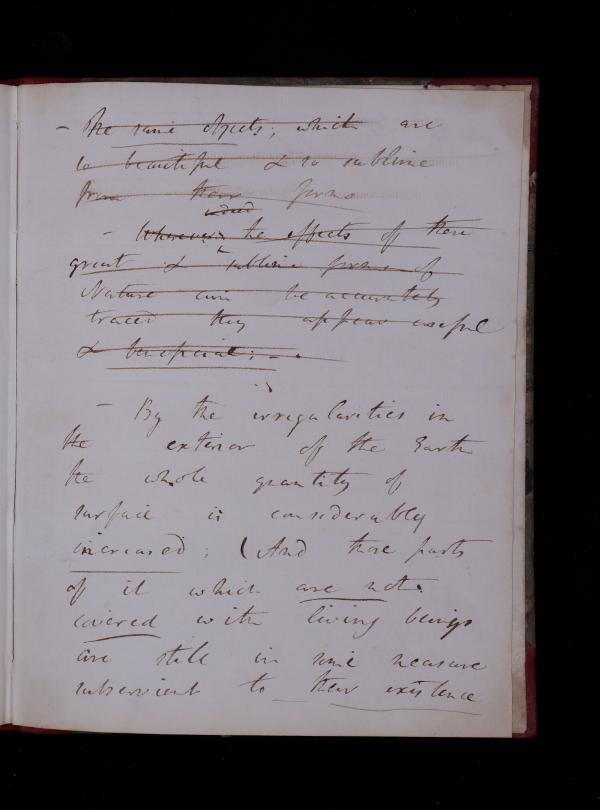 - The same objects; which are
so beautiful & so sublime
from their forms
indeed
- Wherever the effects of these
great & sublime forms of
Nature can be accurately
traced they appear useful
& beneficial: -
- By the irregularities in
the exterior of the Earth
the whole quantity of
surface is considerably
increased; (And those parts
of it which are not
covered with living beings
are still in some measure
subservient to their existence